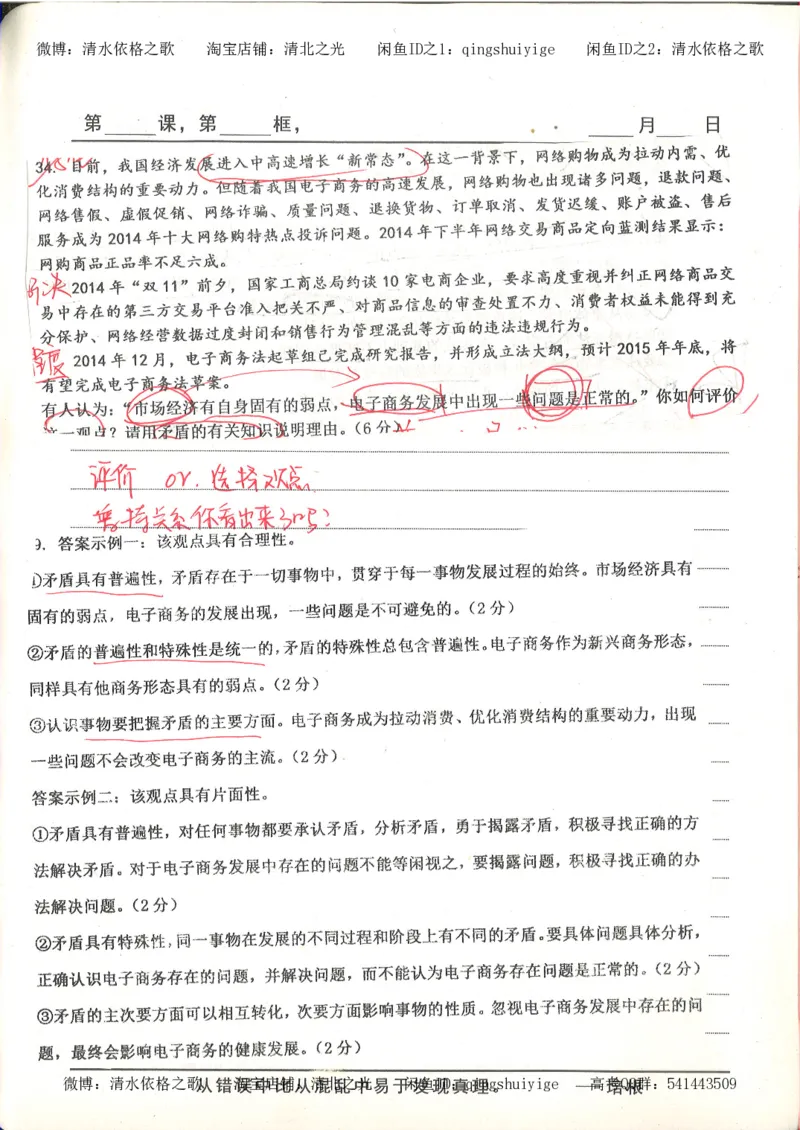 微博：清水依格之歌 淘宝店铺：清北之光 闲鱼ID之1：qingshuiyige 闲鱼ID之2：清水依格之歌
第 课，第 框， 月 日
34. 目前，我国经济发展进入中高速增长“新常态”。在这一背景下，网络购物成为拉动内需、优
化消费结构的重要动力。但随着我国电子商务的高速发展，网络购物也出现诸多问题，退款问题、
网络售假、虚假促销、网络诈骗、质量问题、退换货物、订单取消、发货迟缓、账户被盗、售后
服务成为 2014 年十大网络购特热点投诉问题。2014 年下半年网络交易商品定向蓝测结果显示：
网购商品正品率不足六成。
2014 年“双 11”前夕，国家工商总局约谈 10 家电商企业，要求高度重视并纠正网络商品交
易中存在的第三方交易平台准入把关不严、对商品信息的审查处置不力、消费者权益未能得到充
分保护、网络经营数据过度封闭和销售行为管理混乱等方面的违法违规行为。
2014 年 12 月，电子商务法起草组已完成研究报告，并形成立法大纲，预计 2015 年年底，将
有望完成电子商务法草案。
有人认为：“市场经济有自身固有的弱点，电子商务发展中出现一些问题是正常的。”你如何评价
这一观点？请用矛盾的有关知识说明理由。（6 分）
评价 or. 选择观点
普特关系你看出来了吗？
9. 答案示例一：该观点具有合理性。
①矛盾具有普遍性，矛盾存在于一切事物中，贯穿于每一事物发展过程的始终。市场经济具有
固有的弱点，电子商务的发展出现，一些问题是不可避免的。（2 分）
②矛盾的普遍性和特殊性是统一的，矛盾的特殊性总包含普遍性。电子商务作为新兴商务形态，
同样具有他商务形态具有的弱点。（2 分）
③认识事物要把握矛盾的主要方面。电子商务成为拉动消费、优化消费结构的重要动力，出现
一些问题不会改变电子商务的主流。（2 分）
答案示例二：该观点具有片面性。
①矛盾具有普遍性，对任何事物都要承认矛盾，分析矛盾，勇于揭露矛盾，积极寻找正确的方
法解决矛盾。对于电子商务发展中存在的问题不能等闲视之，要揭露问题，积极寻找正确的办
法解决问题。（2 分）
②矛盾具有特殊性，同一事物在发展的不同过程和阶段上有不同的矛盾。要具体问题具体分析，
正确认识电子商务存在的问题，并解决问题，而不能认为电子商务存在问题是正常的。（2 分）
③矛盾的主次要方面可以相互转化，次要方面影响事物的性质。忽视电子商务发展中存在的问
题，最终会影响电子商务的健康发展。（2 分）
从错误中比从混乱中易于发现真理。 —— 培根
微博：清水依格之歌 淘宝店铺：清北之光 闲鱼ID：qingshuiyige 高考QQ群：541443509